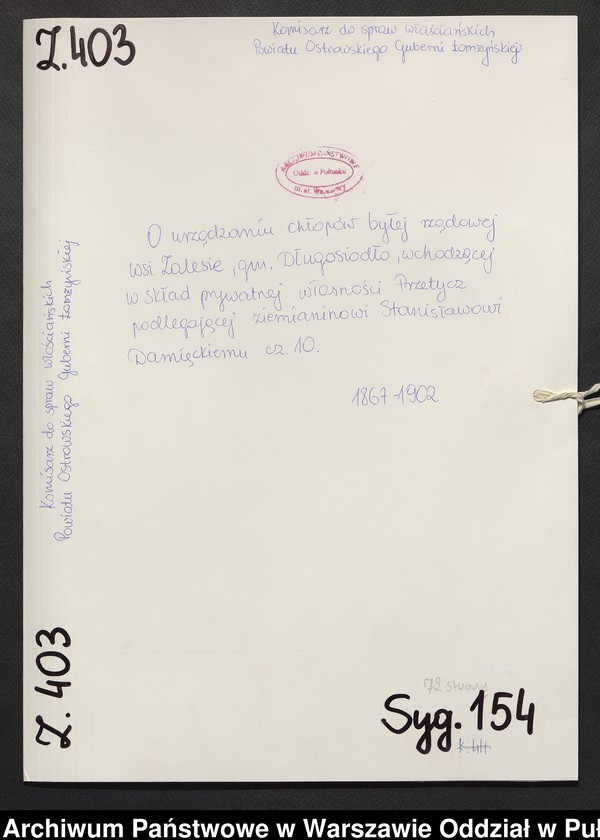 Z.403
Komisarz do spraw włościańskich
Powiatu Ostrowskiego Guberni Łomżyńskiej
ARCHIWUM PAŃSTWOWE
Oddz. w Pułtusku
m. st. Warszawy
O urządzaniu chłopów byłej rządowej
wsi Zalesie, gm. Długosiodło, wchodzącej
w skład prywatnej własności Przetycz
podlegającej ziemianinowi Stanisławowi
Damięckiemu cz. 10.
1867-1902
Komisarz do spraw włościańskich
Powiatu Ostrowskiego Guberni Łomżyńskiej
Z. 403
72 strony
Syg. 154
k. 44
Archiwum Państwowe w Warszawie Oddział w Puł